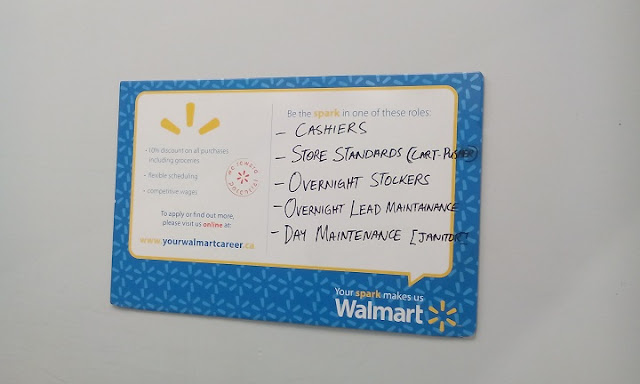 - 10% discount on all purchases
including groceries
- flexible scheduling
- competitive wages
To apply or find out more,
please visit us online at:
www.yourwalmartcareer.ca
Be the spark in one of these roles:
- CASHIERS
- STORE STANDARDS (CART-PUSHER)
- OVERNIGHT STOCKERS
- OVERNIGHT LEAD MAINTAINANCE
- DAY MAINTENANCE [JANITOR]
Your spark makes us
Walmart